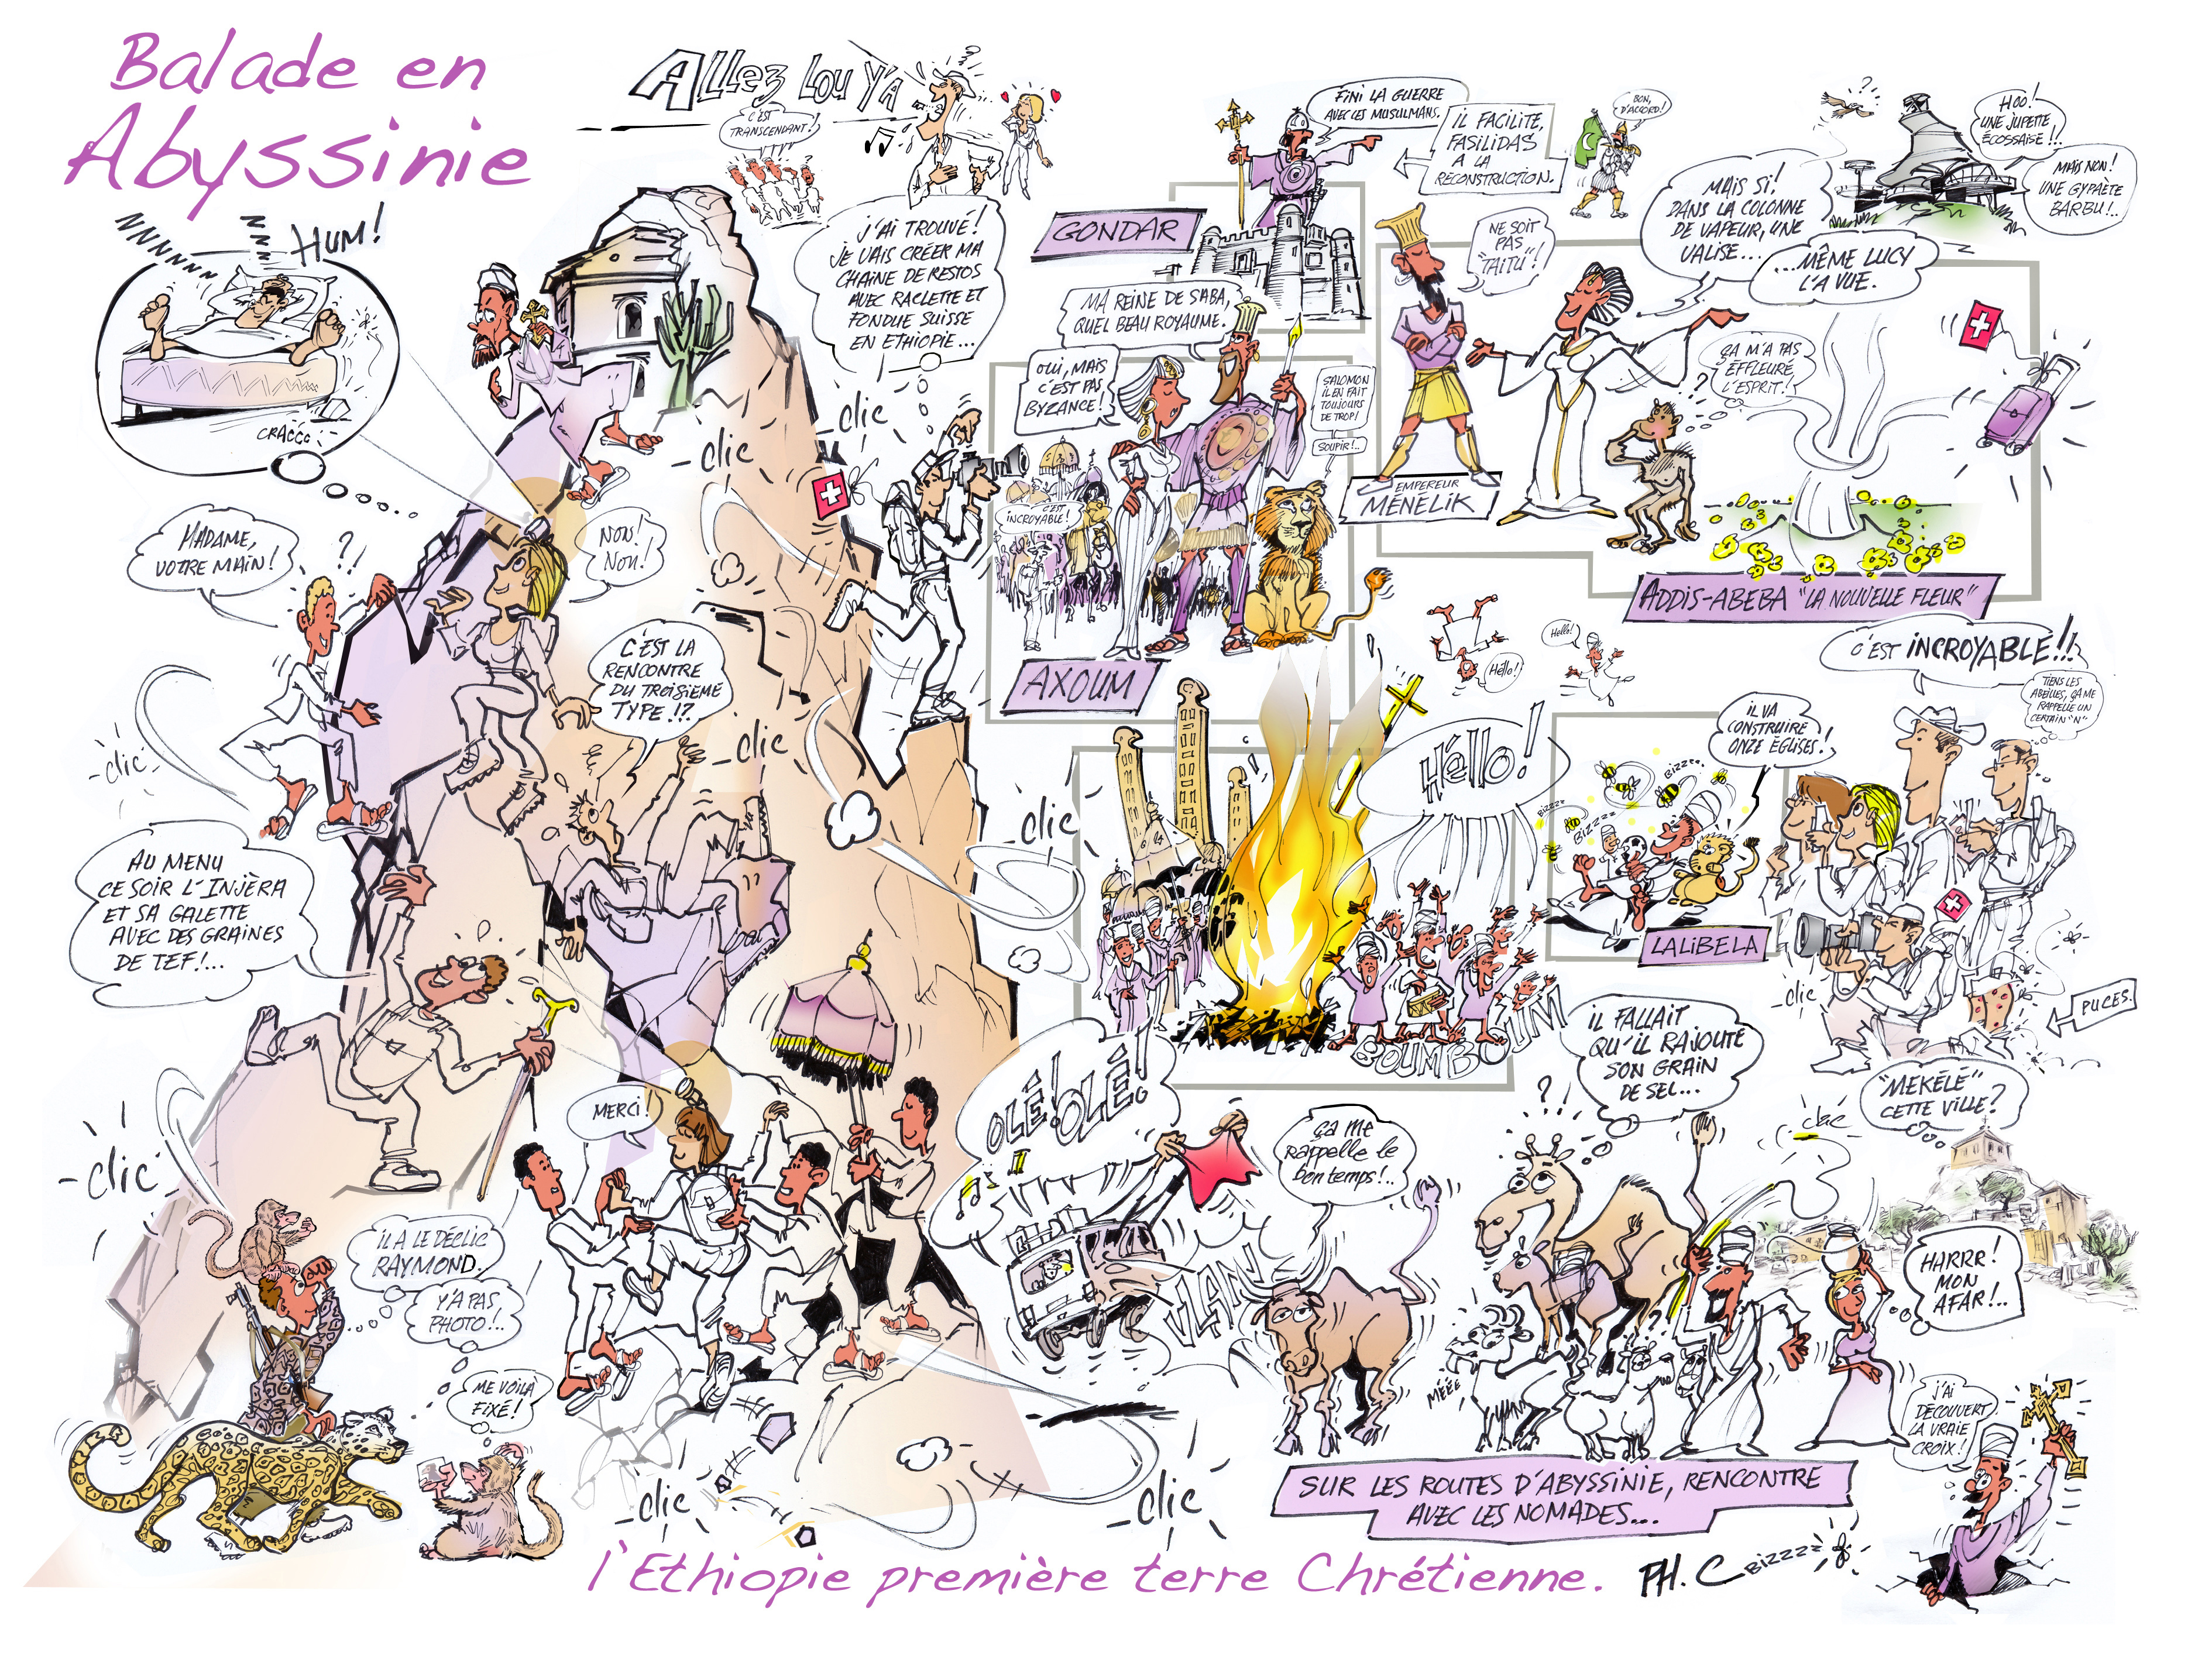 Balade en
Abyssinie
NNNNNN
NNN
HUM!
CRACCC
ALLEZ LOU Y'A
C'EST
TRANSCENDANT!
J'AI TROUVÉ!
JE VAIS CRÉER MA
CHAINE DE RESTOS
AVEC RACLETTE ET
FONDUE SUISSE
EN ETHIOPIE...
FINI LA GUERRE
AVEC LES MUSULMANS.
IL FACILITE,
FASILIDAS
A LA
RECONSTRUCTION.
BON,
D'ACCORD!
GONDAR
HOO!
UNE JUPETTE
ÉCOSSAISE!!.
MAIS NON!
UNE GYPAÈTE
BARBU!..
NE SOIT
PAS
"TAITU"!
MAIS SI!
DANS LA COLONNE
DE VAPEUR, UNE
VALISE...
...MÊME LUCY
L'A VUE.
ÇA M'A PAS
EFFLEURÉ
L'ESPRIT!
EMPEREUR
MÉNÉLIK
ADDIS-ABEBA "LA NOUVELLE FLEUR"
MA REINE DE SABA,
QUEL BEAU ROYAUME.
OUI, MAIS
C'EST PAS
BYZANCE!
SALOMON
IL EN FAIT
TOUJOURS
DE TROP!
SOUPIR!..
C'EST
INCROYABLE!
AXOUM
-clic
-clic
MADAME,
VOTRE MAIN!
?!
NON!
NON!
C'EST LA
RENCONTRE
DU TROISIÈME
TYPE!?
-clic
-clic
-clic
AU MENU
CE SOIR L'INJÈRA
ET SA GALETTE
AVEC DES GRAINES
DE TEF!...
Héllo!
Hello!
Héllo!
BOUM BOUM
C'EST INCROYABLE!!!
TIENS LES
ABEILLES, ÇA ME
RAPPELLE UN
CERTAIN "N"
IL VA
CONSTRUIRE
ONZE ÉGLISES!
BIZZZZ
BIZZZZ
BIZZZZ
LALIBELA
-clic
PUCES.
"MEKÉLÉ"
CETTE VILLE?
IL FALLAIT
QU'IL RAJOUTE
SON GRAIN
DE SEL...
?!
clac
OLÉ! OLÉ!
ça me
rappelle le
bon temps!..
VLAN
MÉÉÉ
HARRR!
MON
AFAR!..
J'AI
DÉCOUVERT
LA VRAIE
CROIX!
MERCI!
-clic
IL A LE DÉCLIC
RAYMOND.
Y'A PAS
PHOTO!..
ME VOILÀ
FIXÉ!
-clic
-clic
SUR LES ROUTES D'ABYSSINIE, RENCONTRE
AVEC LES NOMADES...
l'Ethiopie première terre Chrétienne.
PH. C
BIZZZZ